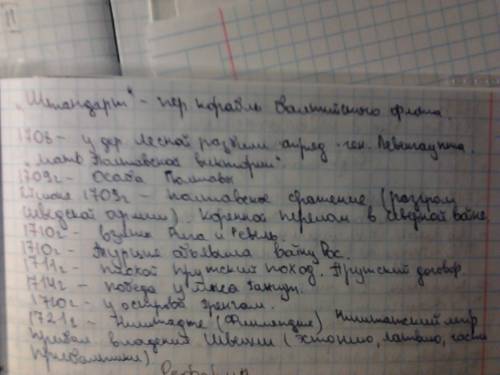 "Штандарт" - пер. корабль Балтийского флота.
1708 - у дер. Лесной разбили отряд ген. Левенгаупта.
"мать Полтавской виктории"
1709г - Осада Полтавы
27 июня 1709г - полтавское сражение (разгром
шведской армии). Коренной перелом в северной войне
1710г - взятие Рига и Ревель.
1710г - Турция объявила войну Рос.
1711г - Прутский поход. Прутский договор.
1714г - победа у мыса Гангут.
1720г - у острова Гренгам.
1721г - Ништадте (Финляндия) Ништадский мир
владения Швеции (Эстонию, Латвию, часть
Прибалтики)